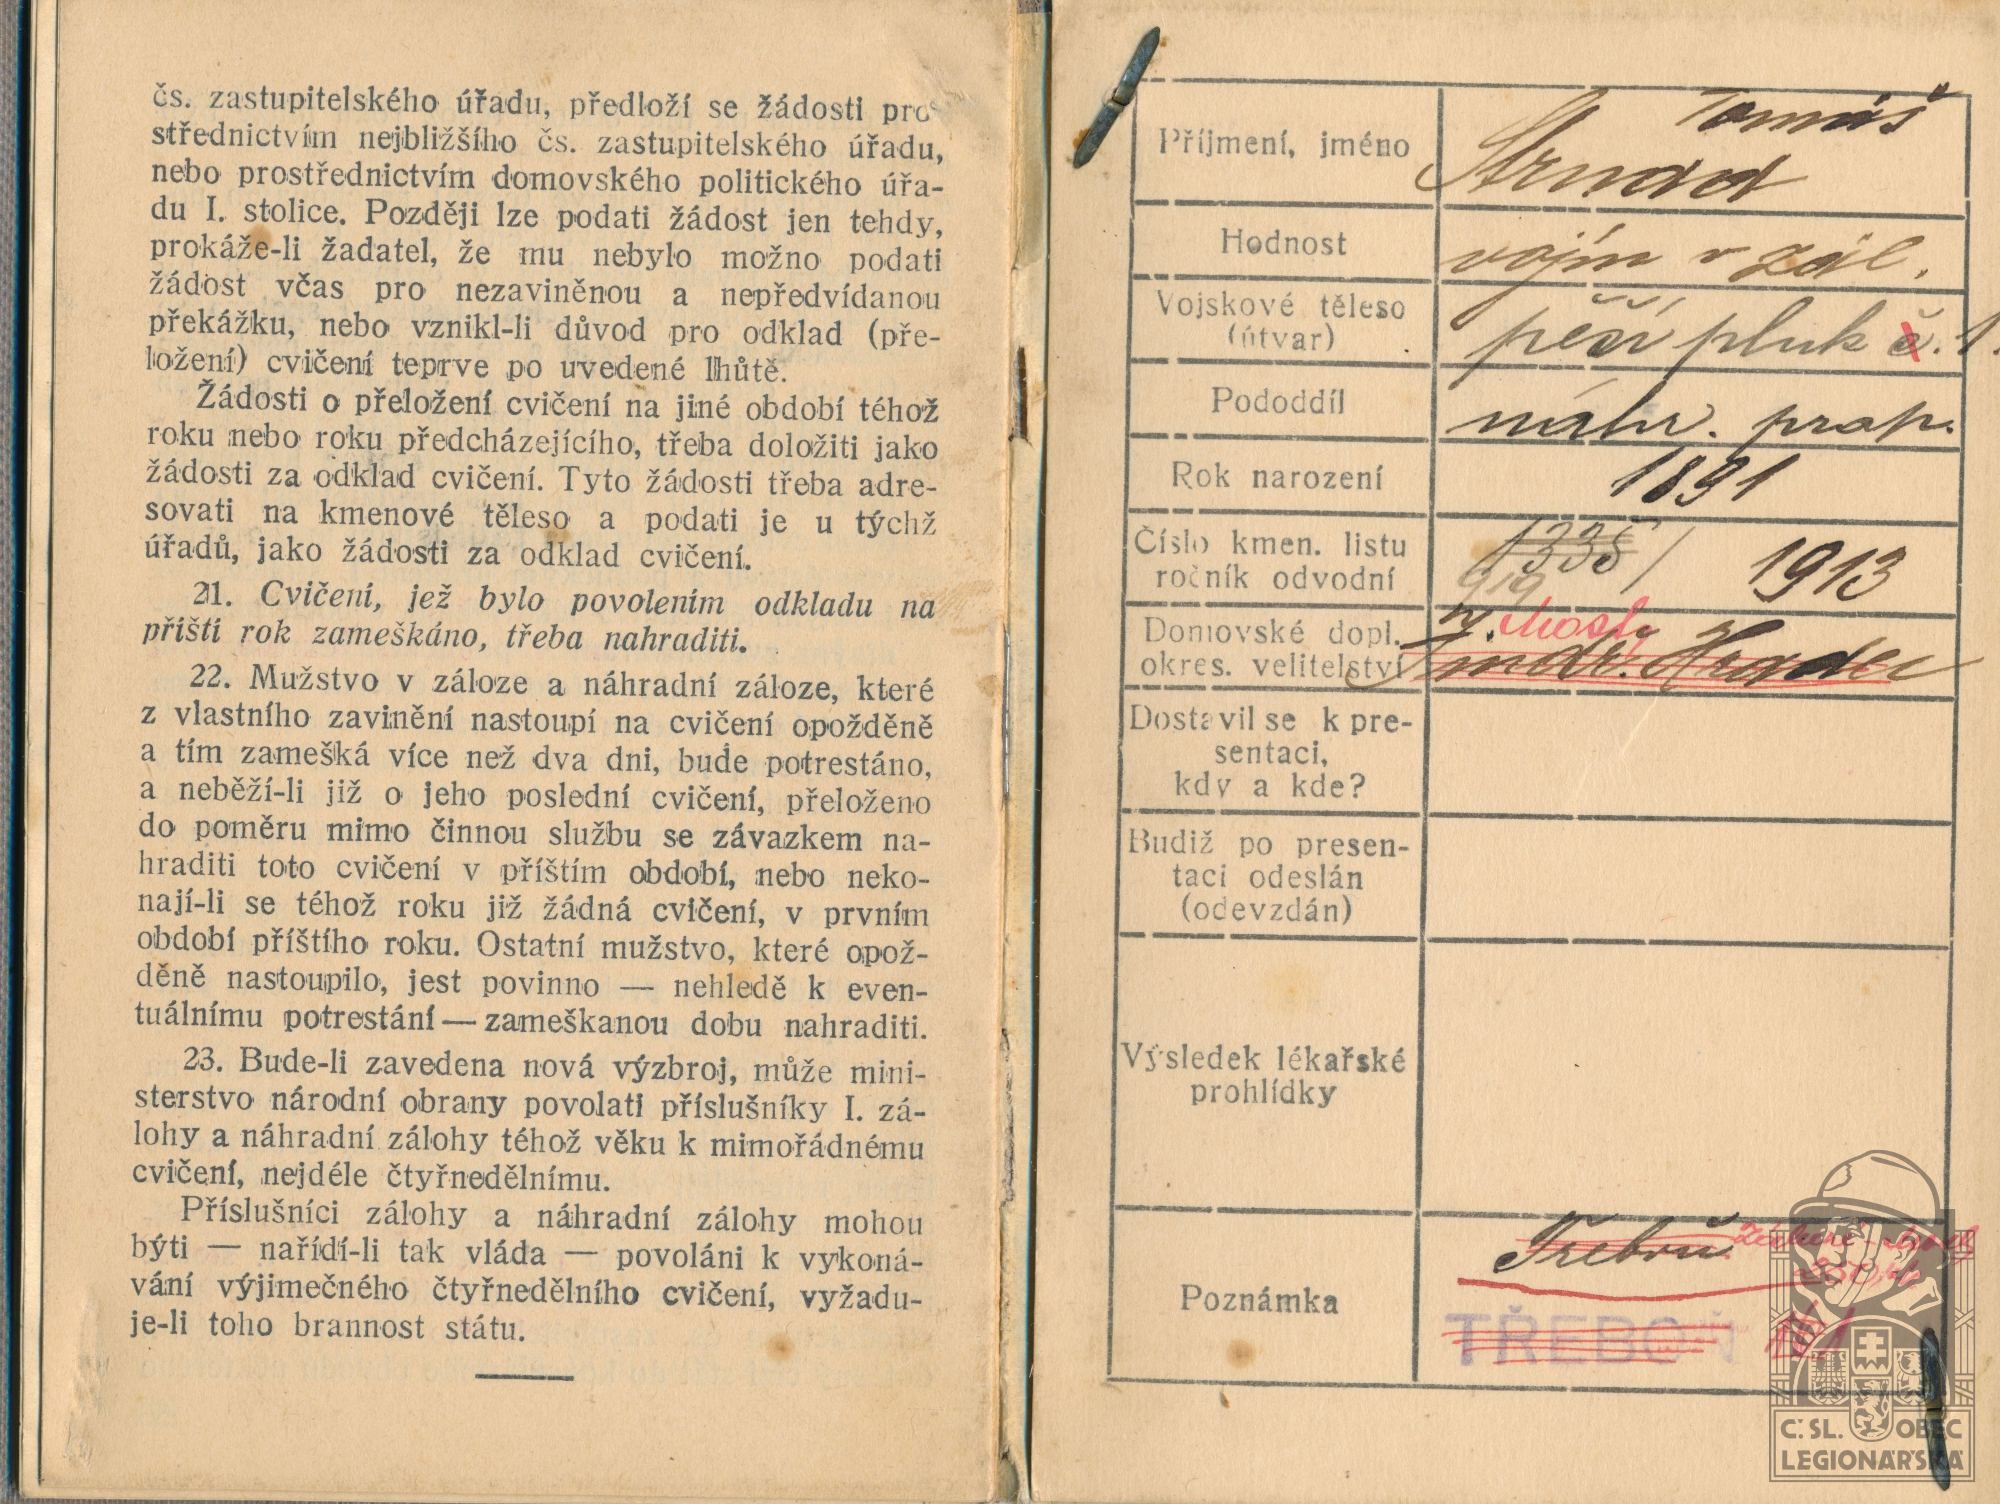 čs. zastupitelského úřadu, předloží se žádosti pro-
střednictvím nejbližšího čs. zastupitelského úřadu,
nebo prostřednictvím domovského politického úřa-
du I. stolice. Později lze podati žádost jen tehdy,
prokáže-li žadatel, že mu nebylo možno podati
žádost včas pro nezaviněnou a nepředvídanou
překážku, nebo vznikl-li důvod pro odklad (pře-
ložení) cvičení teprve po uvedené lhůtě.
Žádosti o přeložení cvičení na jiné období téhož
roku nebo roku předcházejícího, třeba doložiti jako
žádosti za odklad cvičení. Tyto žádosti třeba adre-
sovati na kmenové těleso a podati je u týchž
úřadů, jako žádosti za odklad cvičení.
21. Cvičení, jež bylo povolením odkladu na
příští rok zameškáno, třeba nahraditi.
22. Mužstvo v záloze a náhradní záloze, které
z vlastního zavinění nastoupí na cvičení opožděně
a tím zamešká více než dva dni, bude potrestáno,
a neběží-li již o jeho poslední cvičení, přeloženo
do poměru mimo činnou službu se závazkem na-
hraditi toto cvičení v příštím období, nebo neko-
nají-li se téhož roku již žádná cvičení, v prvním
období příštího roku. Ostatní mužstvo, které opož-
děně nastoupilo, jest povinno — nehledě k even-
tuálnímu potrestání — zameškanou dobu nahraditi.
23. Bude-li zavedena nová výzbroj, může mini-
sterstvo národní obrany povolati příslušníky I. zá-
lohy a náhradní zálohy téhož věku k mimořádnému
cvičení, nejdéle čtyřnedělnímu.
Příslušníci zálohy a náhradní zálohy mohou
býti — nařídí-li tak vláda — povoláni k vykoná-
vání výjimečného čtyřnedělního cvičení, vyžadu-
je-li toho brannost státu.
Příjmení, jméno
Tomáš
Strnad
Hodnost
vojín v zál.
Vojskové těleso
(útvar)
pěší pluk č. 1.
Pododdíl
náhr. prap.
Rok narození
1891
Číslo kmen. listu
ročník odvodní
1335 / 1913
919
Domovské dopl.
okres. velitelství
Most
Jindř. Hradec
Dostavil se k pre-
sentaci,
kdy a kde?
Budiž po presen-
taci odeslán
(odevzdán)
Výsledek lékařské
prohlídky
Poznámka
Třeboň
TŘEBOŇ
Č. SL. OBEC
LEGIONÁŘSKÁ